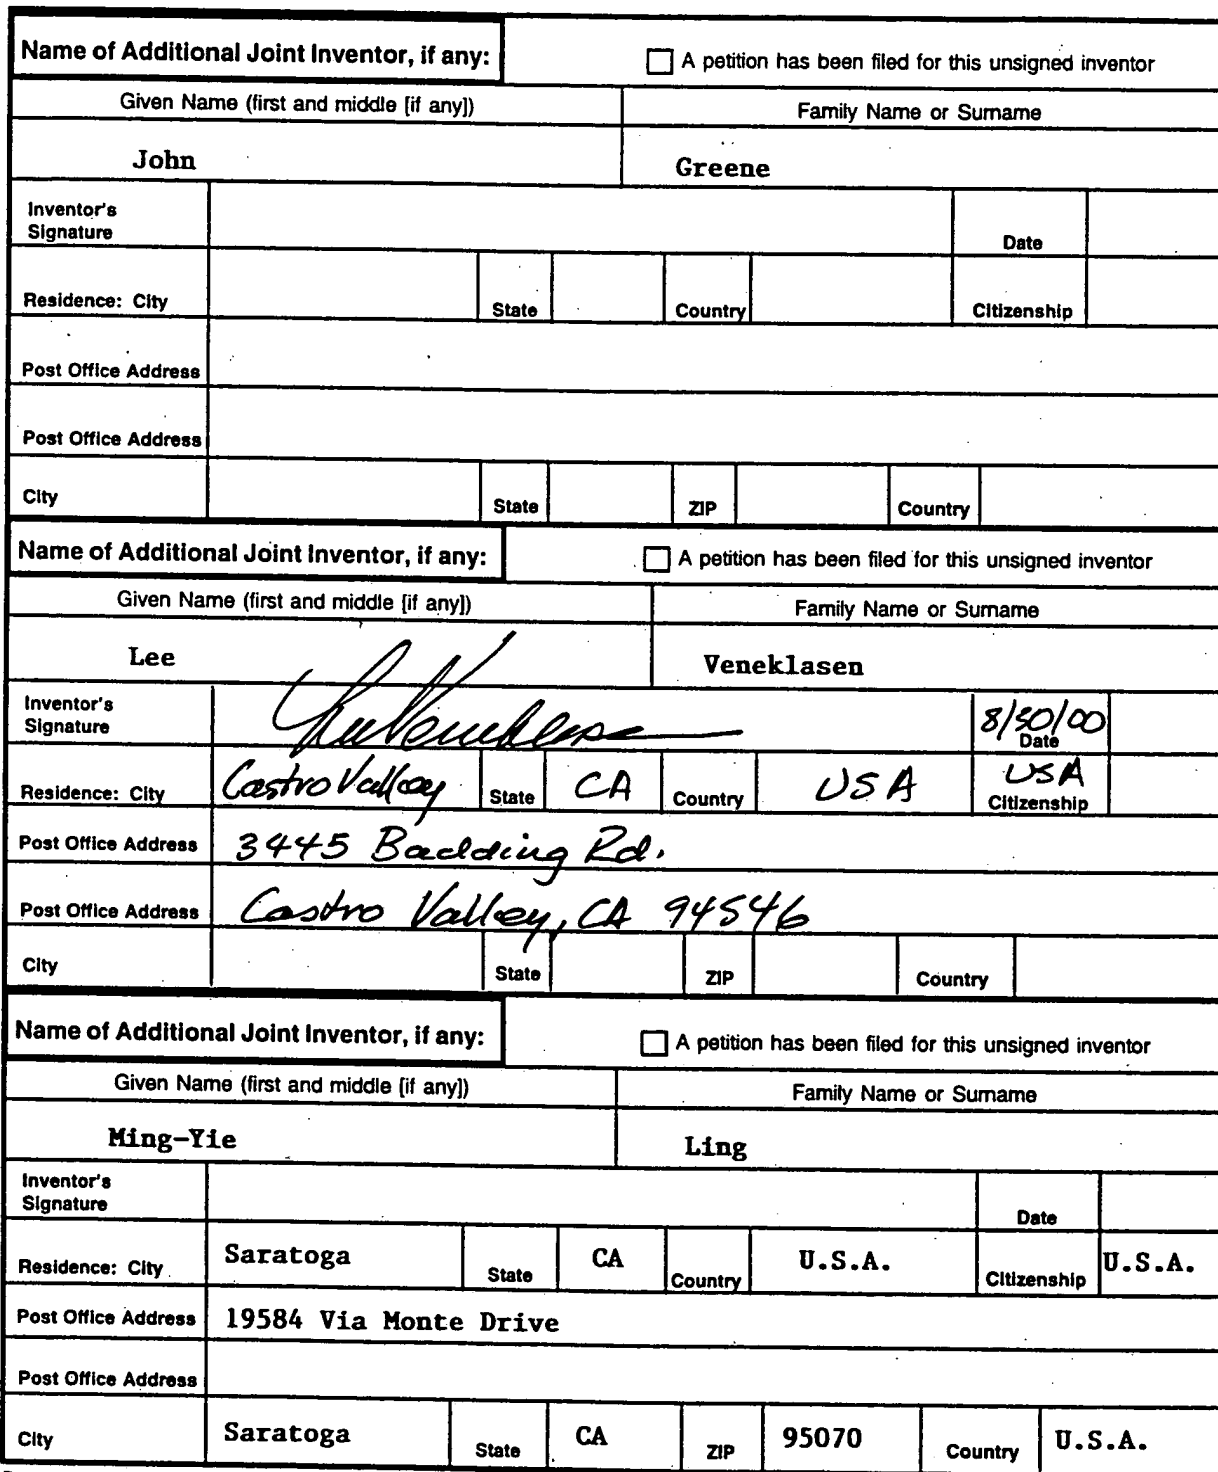 Name of Additional Joint Inventor, if any: A petition has been filed for this unsigned inventor
Given Name (first and middle [if any]) Family Name or Surname
John Greene
Inventor's
Signature Date
Residence: City State Country Citizenship
Post Office Address
Post Office Address
City State ZIP Country
Name of Additional Joint Inventor, if any: A petition has been filed for this unsigned inventor
Given Name (first and middle [if any]) Family Name or Surname
Lee Veneklasen
Inventor's
Signature Lee Veneklasen 8/30/00 Date
Residence: City Castro Valley State CA Country USA USA Citizenship
Post Office Address 3445 Badding Rd.
Post Office Address Castro Valley, CA 94546
City State ZIP Country
Name of Additional Joint Inventor, if any: A petition has been filed for this unsigned inventor
Given Name (first and middle [if any]) Family Name or Surname
Ming-Yie Ling
Inventor's
Signature Date
Residence: City Saratoga State CA Country U.S.A. Citizenship U.S.A.
Post Office Address 19584 Via Monte Drive
Post Office Address
City Saratoga State CA ZIP 95070 Country U.S.A.